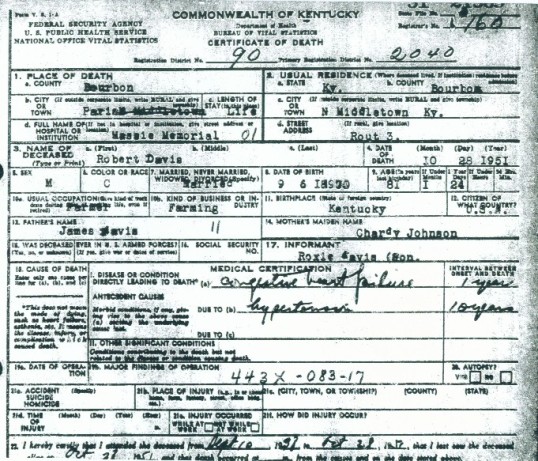 Form V. S. 1-A
COMMONWEALTH OF KENTUCKY
FEDERAL SECURITY AGENCY
Department of Health
U. S. PUBLIC HEALTH SERVICE
BUREAU OF VITAL STATISTICS
NATIONAL OFFICE VITAL STATISTICS
CERTIFICATE OF DEATH
Registrar's No. 160
Registration District No. 90 Primary Registration District No. 2040
1. PLACE OF DEATH
2. USUAL RESIDENCE (Where deceased lived. If institution: residence before
a. COUNTY Bourbon
a. STATE Ky. b. COUNTY Bourbon
b. CITY (If outside corporate limits, write RURAL and give c. LENGTH OF
OR STAY (in this place)
TOWN Life
c. CITY (If outside corporate limits, write RURAL and give township)
OR
TOWN N Middletown Ky.
d. FULL NAME OF (If not in hospital or institution, give street address or
HOSPITAL OR
INSTITUTION Massie Memorial 01
d. STREET (If rural, give location)
ADDRESS Rout 3.
3. NAME OF a. (First) b. (Middle) c. (Last)
DECEASED
(Type or Print) Robert Davis
4. DATE (Month) (Day) (Year)
OF
DEATH 10 28 1951
5. SEX M
6. COLOR OR RACE C
7. MARRIED, NEVER MARRIED,
WIDOWED, DIVORCED (Specify)
Married
8. DATE OF BIRTH
9 6
9. AGE (In years
last birthday) 81 1 24
10a. USUAL OCCUPATION (Give kind of work
Farmer
10b. KIND OF BUSINESS OR INDUSTRY
Farming
11. BIRTHPLACE (State or foreign country)
Kentucky
12. CITIZEN OF
WHAT COUNTRY?
U.S.A.
13. FATHER'S NAME
James Davis
14. MOTHER'S MAIDEN NAME
Johnson
15. WAS DECEASED EVER IN U. S. ARMED FORCES?
(Yes, no, or unknown) (If yes, give war or dates of service)
16. SOCIAL SECURITY
NO.
17. INFORMANT
Roxie Davis (Son.
18. CAUSE OF DEATH
Enter only one cause per
line for (a), (b), and (c)
MEDICAL CERTIFICATION
INTERVAL BETWEEN
ONSET AND DEATH
I. DISEASE OR CONDITION
DIRECTLY LEADING TO DEATH* (a) Congestive heart failure 1 year
*This does not mean
the mode of dying,
such as heart failure,
asthenia, etc. It means
the disease, injury, or
complication which
caused death.
ANTECEDENT CAUSES
Morbid conditions, if any, giving
rise to the above cause
(a) stating the underlying
cause last.
DUE TO (b) hypertension 10 years
DUE TO (c)
II. OTHER SIGNIFICANT CONDITIONS
Conditions contributing to the death but not
related to the disease or condition causing death.
19a. DATE OF OPERATION
19b. MAJOR FINDINGS OF OPERATION
443X -083-17
20. AUTOPSY?
YES NO
21a. ACCIDENT
SUICIDE
HOMICIDE
21b. PLACE OF INJURY
21c. (CITY, TOWN, OR TOWNSHIP) (COUNTY) (STATE)
21d. TIME (Month) (Day) (Year) (Hour)
OF
INJURY
21e. INJURY OCCURRED
WHILE AT WORK NOT WHILE AT WORK
21f. HOW DID INJURY OCCUR?
22. I hereby certify that I attended the deceased from that I last saw the deceased